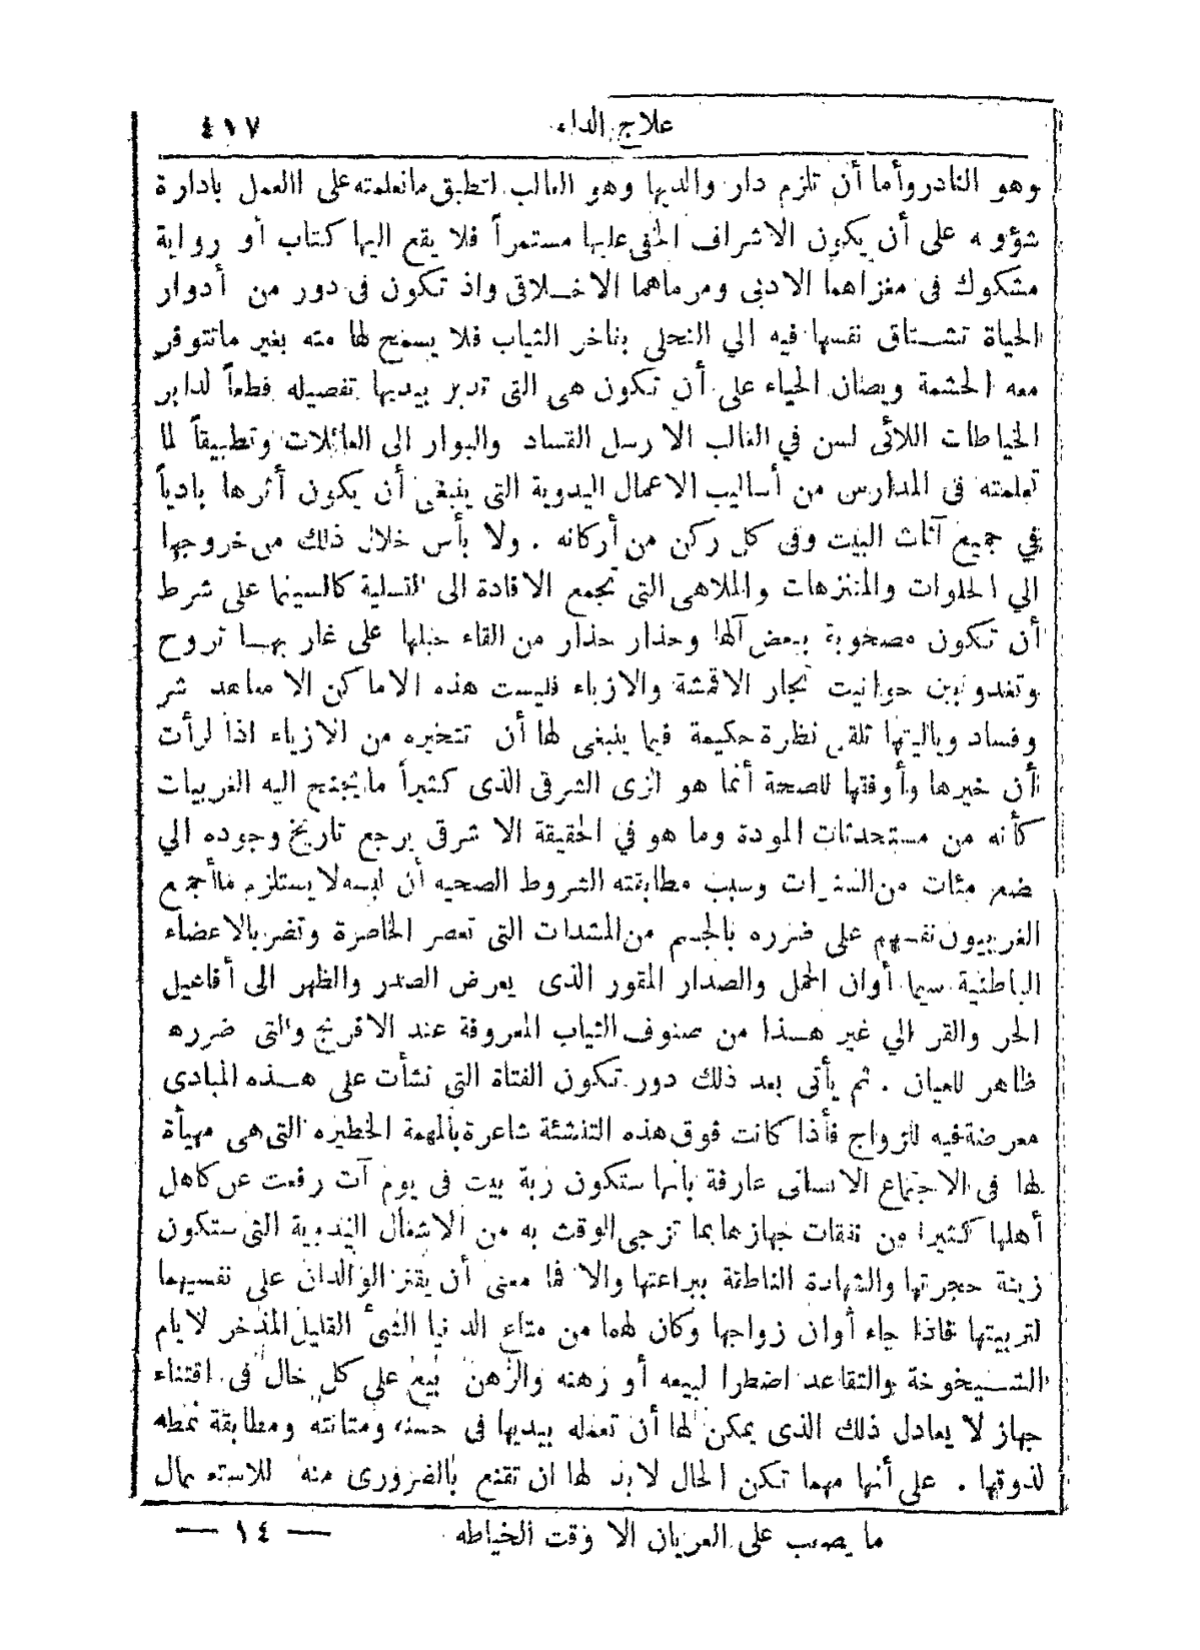 علاج الداء ٤١٧
وهو النادر وأما أن تلزم دار والديها وهو الغالب لتطبق ما تعلمته على العمل بادارة
شؤونه على أن يكون الاشراف الخفى عليها مستمراً فلا يقع اليها كتاب أو رواية
مشكوك فى مغزاهما الادبى ومرماهما الاخلاقى واذ تكون فى دور من أدوار
الحياة تشتاق نفسها فيه الي التحلي بفاخر الثياب فلا يسمح لها منه بغير ماتتوفر
معه الحشمة ويصان الحياء على أن تكون هى التى تدبر بيديها تفصيله قطعاً لدابر
الخياطات اللائى لسن في الغالب الا رسل الفساد والبوار الى العائلات وتطبيقاً لما
تعلمته فى المدارس من أساليب الاعمال اليدوية التى ينبغى أن يكون أثرها بادياً
في جميع آثاث البيت وفى كل ركن من أركانه . ولا بأس خلال ذلك من خروجها
الي الخلوات والمتنزهات والملاهى التى تجمع الافادة الى التسلية كالسينما على شرط
أن تكون مصحوبة ببعض آلها وحذار حذار من القاء حبلها على غاربها تروح
وتغدو بين حوانيت تجار الاقمشة والازياء فليست هذه الاماكن الا مباعد شر
وفساد وياليتها تلقى نظرة حكيمة فيما ينبغى لها أن تتخيره من الازياء اذا لرأت
أن خيرها وأوفقها للصحة أنما هو الزى الشرقى الذى كثيراً ما يجنح اليه الغربيات
كأنه من مستحدثات المودة وما هو في الحقيقة الا شرقى يرجع تاريخ وجوده الي
بضع مئات من السنوات وسبب مطابقته الشروط الصحيه أن لبسه لا يستلزم ما أجمع
الغربيون نفسهم على ضرره بالجسم من المشدات التى تعصر الخاصرة وتضر بالاعضاء
الباطنية سيما أوان الحمل والصدار المقور الذى يعرض الصدر والظهر الى أفاعيل
الحر والقر الي غير هذا من صنوف الثياب المعروفة عند الافرنج والتى ضرره
ظاهر للعيان . ثم يأتى بعد ذلك دور تكون الفتاة التي نشأت على هذه المبادى
معرضة فيه للزواج فأذا كانت فوق هذه التنشئة شاعرة بالمهمة الخطيره التى هى مهيأة
لها فى الاجتماع الانسانى عارفة بانها ستكون ربة بيت فى يوم آت رفعت عن كاهل
أهلها كثيرا من نفقات جهازها بما تزجى الوقت به من الاشغال اليدوية التى ستكون
زينة حجرتها والشهادة الناطقة ببراعتها والا فما معنى أن يقتر الوالدان على نفسيهما
لتربيتها فاذا جاء أوان زواجها وكان لهما من متاع الدنيا الشئ القليل المذخر لايام
الشيخوخة والتقاعد اضطرا لبيعه أو رهنه والرهن بيع على كل حال فى اقتناء
جهاز لا يعادل ذلك الذى يمكن لها أن تعمله بيديها فى حسنه ومتانته ومطابقة نمطه
لذوقها . على أنها مهما تكن الحال لابد لها ان تقنع بالضرورى منه للاستعمال
ما يصعب على العريان الا وقت الخياطه — ١٤ —